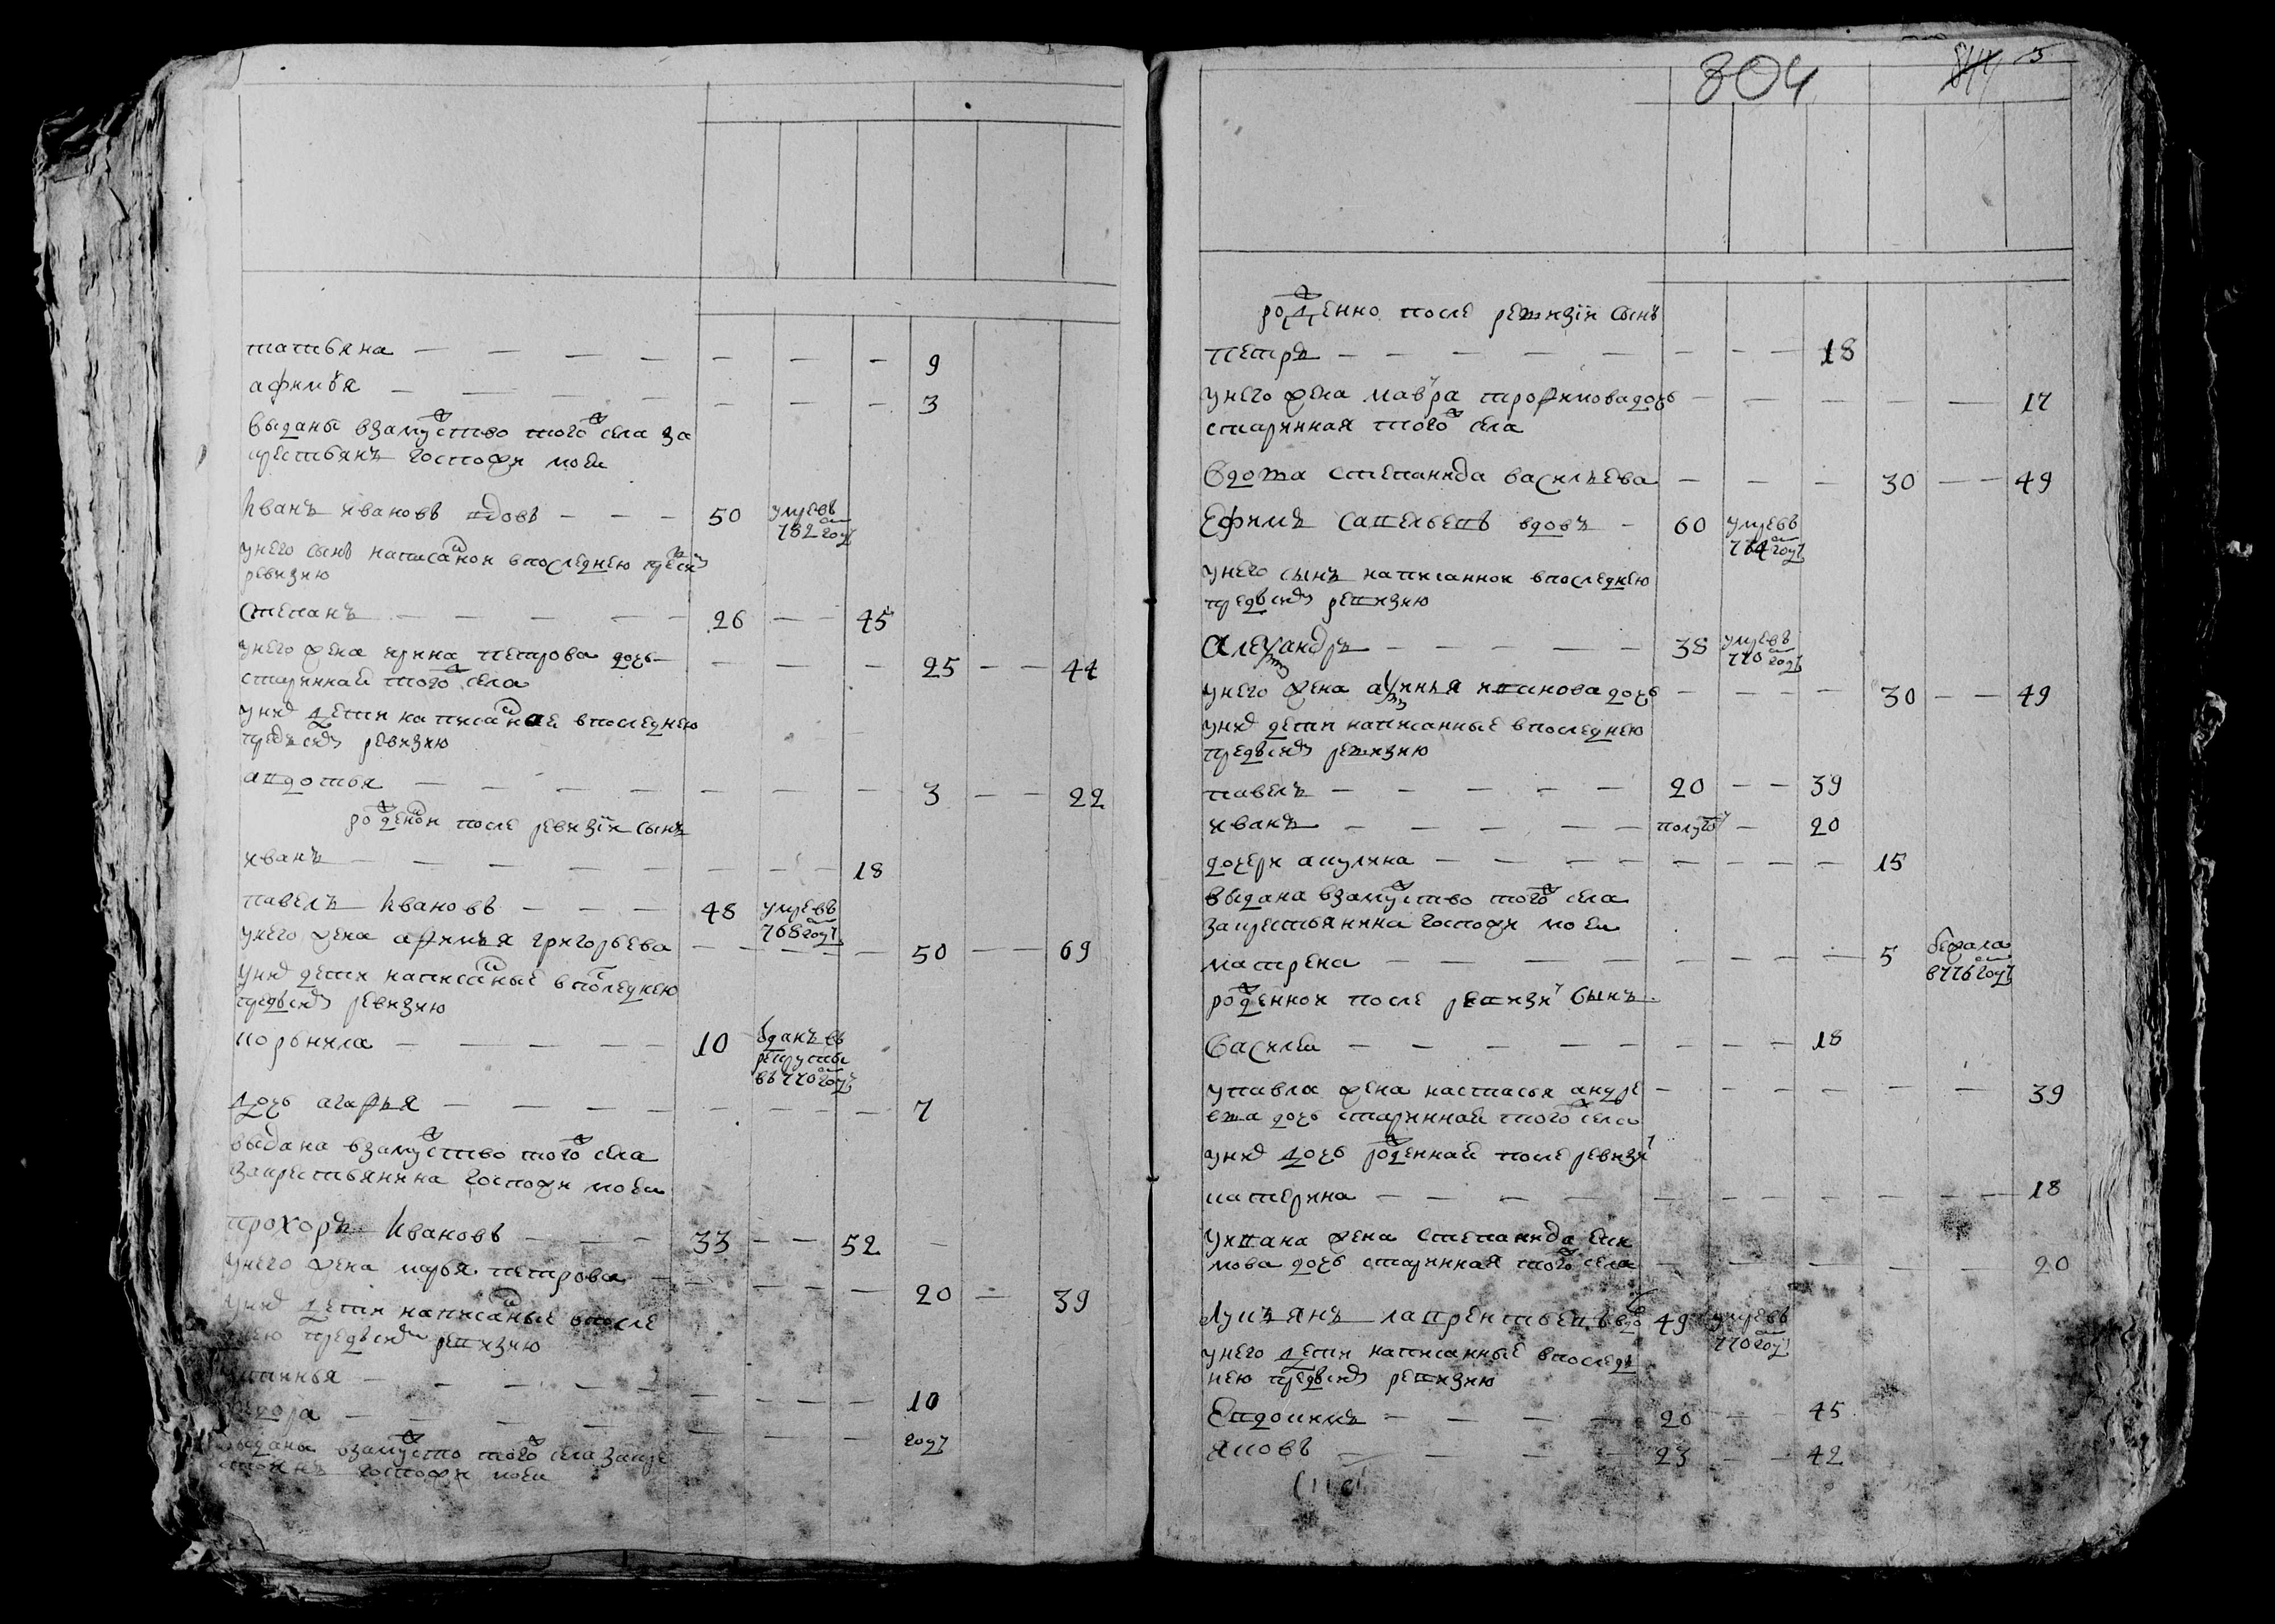 татьяна — — — — — — — 9
афимья — — — — — — — 3
выданы взамужство того ж села за
крестьянъ господи моеи
Иванъ ивановъ вдовъ — — — 50 умревъ
782 году
унего сынъ написанои впоследнею пред сим
ревизию
степанъ — — — — — 26 — — 45
унего жена ирина петрова дочь — — — 25 — — 44
стариннаи того ж села
уних дети написаные впоследнею
предъ сим ревизию
авдотья — — — — — — — 3 — — 22
рожденои после ревизiи сынъ
иванъ — — — — — — — 18
павелъ Ивановъ — — — 48 умревъ
768 году
унего жена афимья григорьева — — — — 50 — — 69
уних дети написаные впоследнею
предъ сим ревизию
корнила — — — — — 10 отданъ въ
рекруты
въ 770 году
дочь агафья — — — — — — — 7
выдана взамужство того ж села
закрестьянина господи моеи
прохоръ Ивановъ — — — 33 — — 52 —
унего жена марья петрова — — — — 20 — 39
уних дети написаные впосле
днею предъ сим ревизию
— — — — — — — 10
— — — — — — — году
выданы взамужство того ж села закре
стьянъ господи моеи
304 5
рожденно после ревизiи сынъ
петръ — — — — — — — — 18
унего жена мавра трофимова дочь — — — — — 17
старинная того ж села
Вдова степанида васильева — — — 30 — — 49
Ефимъ савельевъ вдовъ — 60 умревъ
764 году
унего сынъ написаннои впоследнею
предъ сим ревизию
Александръ — — — — — 38 умревъ
770 году
унего жена аксинья иванова дочь — — — — 30 — — 49
уних дети написанные впоследнею
предъ сим ревизию
павелъ — — — — — 20 — — 39
иванъ — — — — — полуго — 20
дочери акулина — — — — — — — 15
выдана взамужство того ж села
закрестьянина господи моеи
матрена — — — — — — — 5 бежала
в 776 году
рожденнои после ревизи сынъ
Василеи — — — — — — — — 18
упавла жена настасья андре — — — — — — 39
ева дочь стариннаи того ж села
уних дочь рожденнаи после ревизи
катерина — — — — — — — — — — 18
уивана жена степанида еки
мова дочь старинная того ж села — — — — — — 20
Лукьянъ лаврентьевъ вдо 49 умревъ
770 году
унего дети написанные впослед
нею предъ сим ревизию
Евдокимъ — — — — 26 — 45
яковъ — — — — 23 — — 42